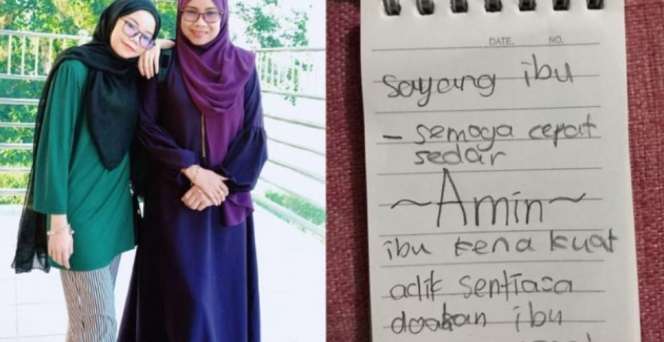 DATE. NO.
Sayang ibu
- semoga cepat
sedar
~Amin~
ibu kena kuat
adik sentiasa
doakan ibu